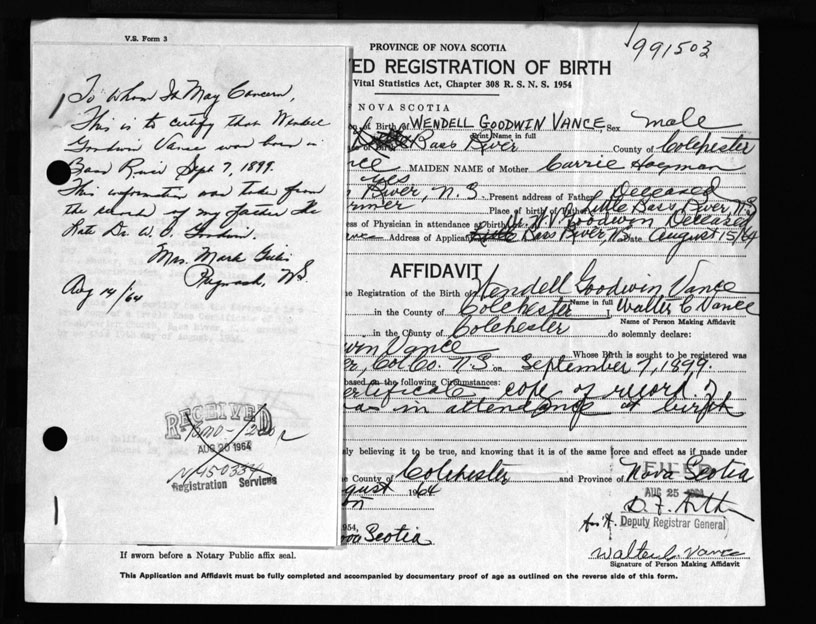 V.S. Form 3
991503
To Whom It May Concern,
This is to certify that Wendell
Goodwin Vance was born in
Bass River Sept 7, 1899.
This information was taken from
the record of my father the
late Dr. W. Goodwin.
Mrs. Mark
Pugwash, N.S.
Aug 14/64
RECEIVED
AUG 20 1964
N450334
Registration Services
PROVINCE OF NOVA SCOTIA
ED REGISTRATION OF BIRTH
Vital Statistics Act, Chapter 308 R. S. N. S. 1954
F NOVA SCOTIA
of Birth of WENDELL GOODWIN VANCE, Sex male
Print Name in full
Bass River County of Colchester
nce MAIDEN NAME of Mother Carrie
River, N.S. Present address of Father Deceased
rmer Place of birth of Father Little Bass River N.S.
s of Physician in attendance at birth Goodwin Deceased
Address of Applicant Little Bass River, N.S. Date August 15/64
AFFIDAVIT
e Registration of the Birth of Wendell Goodwin Vance
Name in full
in the County of Colchester I, Walter C Vance
Name of Person Making Affidavit
in the County of Colchester do solemnly declare:
win Vance Whose Birth is sought to be registered was
er, Col. Co. N.S. on September 7, 1899.
based on the following Circumstances:
ertificate copy of record of
was in attendance at birth
ly believing it to be true, and knowing that it is of the same force and effect as if made under
e County of Colchester and Province of Nova Scotia
FILED
ugust 1964
AUG 25
954,
Deputy Registrar General
ova Scotia
Walter C. Vance
Signature of Person Making Affidavit
If sworn before a Notary Public affix seal.
This Application and Affidavit must be fully completed and accompanied by documentary proof of age as outlined on the reverse side of this form.